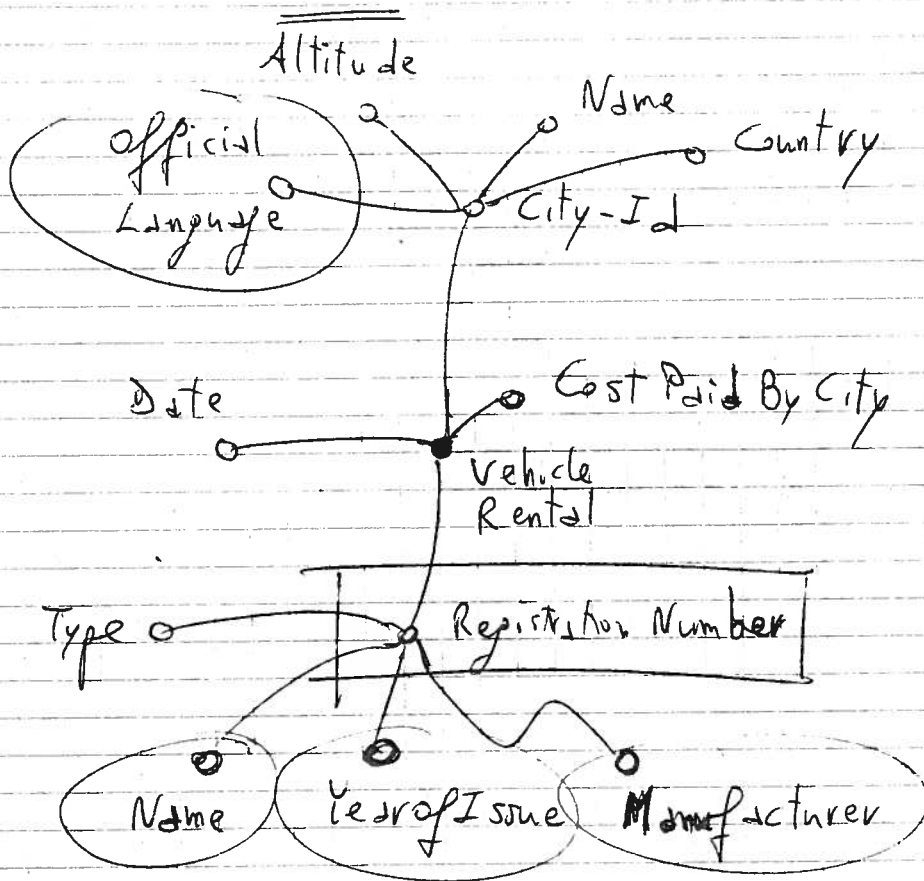 Altitude
Name
Official
Language
Country
City-Id
Date
Cost Paid By City
Vehicle
Rental
Type
Registration Number
Name
Year of Issue
Manufacturer